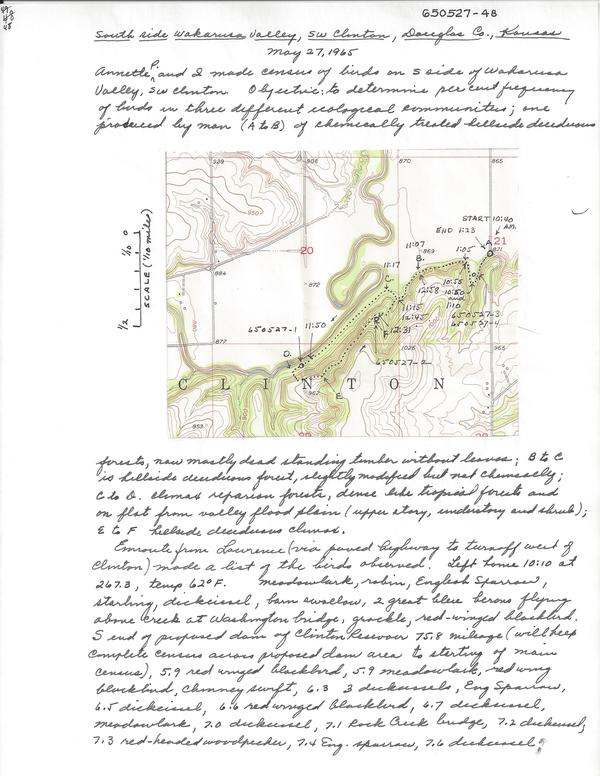 650527-48
South side Wakarusa Valley, SW Clinton, Douglas Co., Kansas
May 27, 1965
Annette P. and I made census of birds on S side of Wakarusa
Valley, SW Clinton. Objective: to determine per cent frequency
of birds in three different ecological communities; one
produced by man (A to B) of chemically treated hillside deciduous
929
906
870
865
950
START 10:40 A.M.
END 1:23
A.
21
871
11:07
B.
869
1:05
20
11:17
C
884
872
10:55
10:50
and
1:10
12:58
11:15
12:45
650527-3
650527-4
F
12:31
650527-1
11:50
877
1025
965
650527-2
D.
CLINTON
962
E
953
29
28
1/10 0
1/2
SCALE (1/10 miles)
forests, now mostly dead standing timber without leaves; B to C
is hillside deciduous forest, slightly modified but not chemically;
C to D. climax reparian forests, dense like tropical forests and
on flat from valley flood plain (upper story, understory and shrub);
E to F hillside deciduous climax.
Enroute from Lawrence (via paved highway to turnoff west of
Clinton) made a list of the birds observed. Left home 10:10 at
267.3, temp 62°F. meadowlark, robin, English Sparrow,
starling, dickcissel, barn swallow, 2 great blue herons flying
above Creek at Washington bridge, grackle, red-winged blackbird.
S end of proposed dam of Clinton Reservoir 75.8 mileage (will keep
complete census across proposed dam area to starting of main
census), 5.9 red winged blackbird, 5.9 meadowlark, red wing
blackbird, chimney swift, 6.3 3 dickcissels, Eng Sparrow,
6.5 dickcissel, 6.6 red winged blackbird, 6.7 dickcissel,
meadowlark, 7.0 dickcissel, 7.1 Rock Creek bridge, 7.2 dickcissel,
7.3 red-headed woodpecker, 7.4 Eng. sparrow, 7.6 dickcissel,